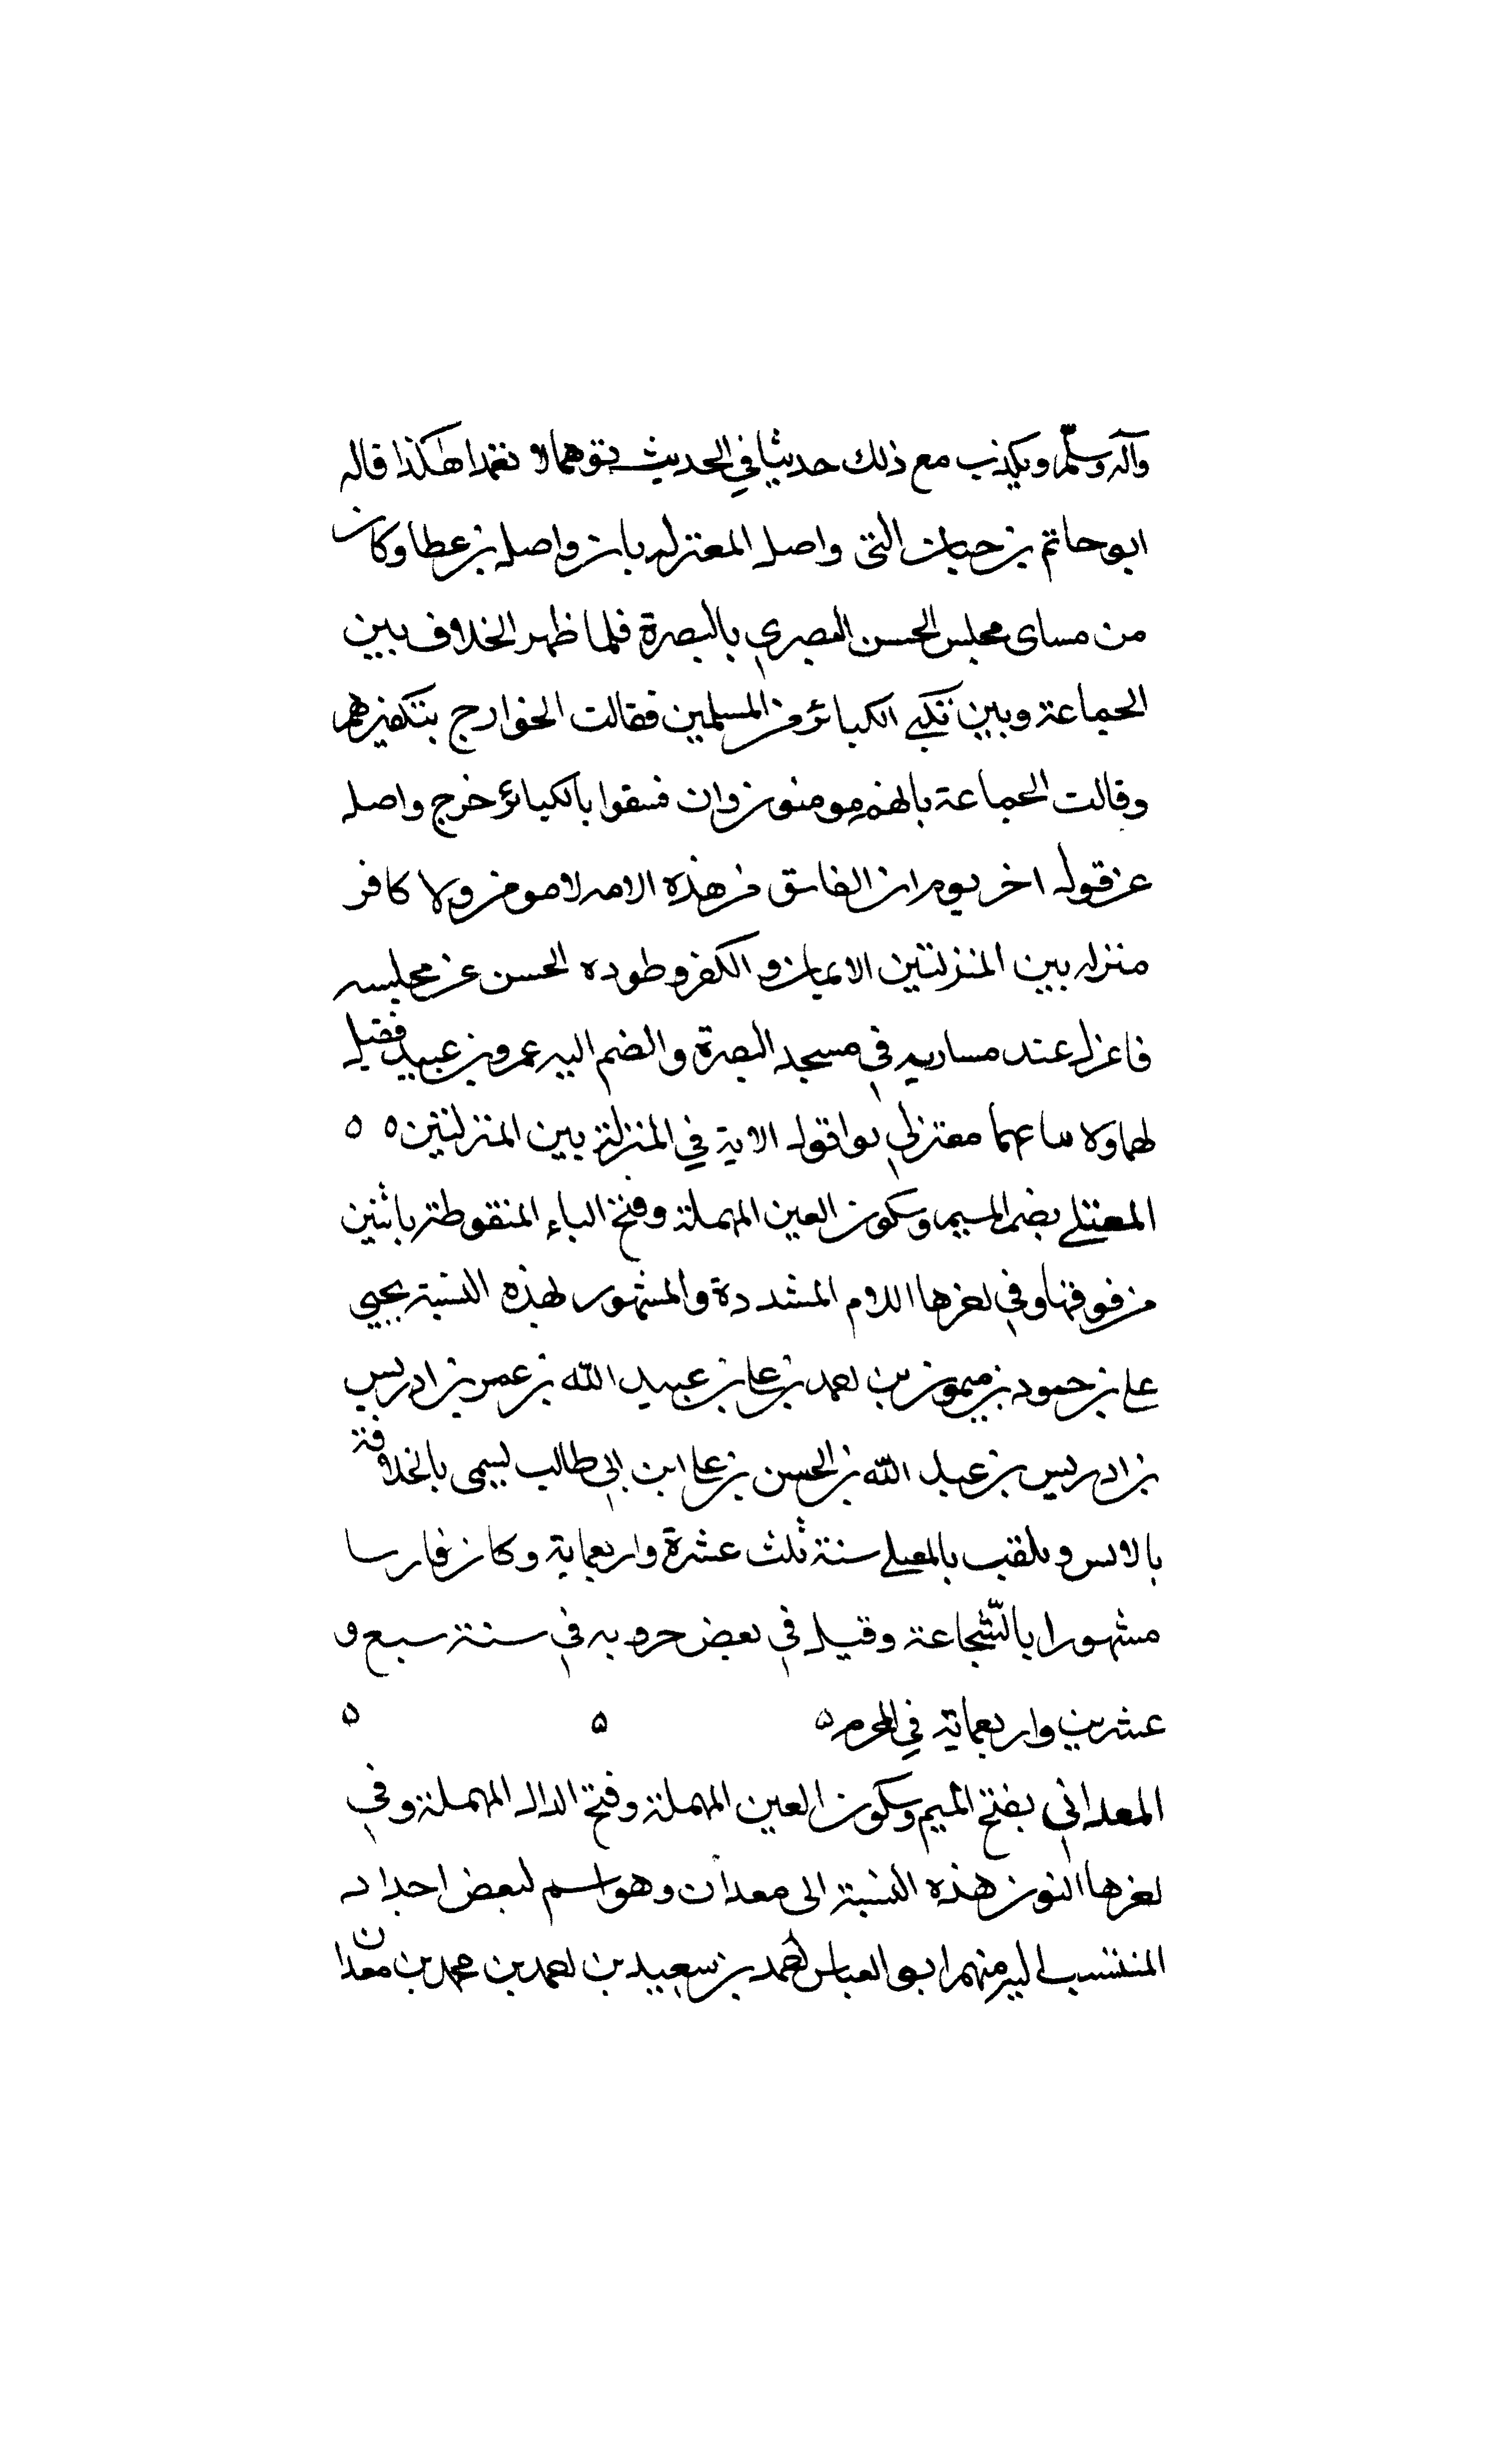 وآله وسلّم ويكذب مع ذلك حديثا في الحديث توهما لا تعمدا هكذا قاله
ابو حاتم بن حبان التى واصل المعتزله بان واصل بن عطا وكان
من مساى مجلس الحسن البصري بالبصرة فلما ظهر الخلاف بين
الجماعة وبين تكبي الكبائر من المسلمين فقالت الخوارج بتكفيرهم
وقالت الجماعة بانهم مومنون وان فسقوا بالكبائر خرج واصل
عن قوله اخر يوم ان الفاسق من هذه الامه لا مومن ولا كافر
منزله بين المنزلتين الايمان والكفر وطوده الحسن عن مجلسه
فاعزل عند مساريه في مسجد البصرة والضم اليه عمرو بن عبيد فقيل
لهما ولا ساعهما معتزلي لوا قول الاية في المنزلة بين المنزلتين ٥ ٥
المعتلي بضم الميم وسكون العين المهملة وفتح الباء المنقوطة باثنين
من فوقها وفي اخرها اللام المشددة والمشهور بهذه النسبة يحيى
علي بن حمود بن ميمون بن احمد بن علي بن عبيد الله بن عمر بن ادريس
بن ادريس بن عبد الله بن الحسن بن علي ابن ابي طالب ليسمى بالخلافة
بالاىس وىلقب بالمعىلي سنة ثلث عشرة واربعماية وكان فارسا
مشهورا بالشّجاعة وقيل في بعض حروبه في سنة سبع و
عشرين واربعماية في المحرم ٥ ٥ ٥
المعداني بفتح الميم وسكون العين المهملة وفتح الدال المهملة وفي
اخرها النون هذه النسبة الى معدان وهو اسم لبعض اجداد
المنتسب اليه منهم ابو العباس احمد بن سعيد بن احمد بن محمد بن معدان